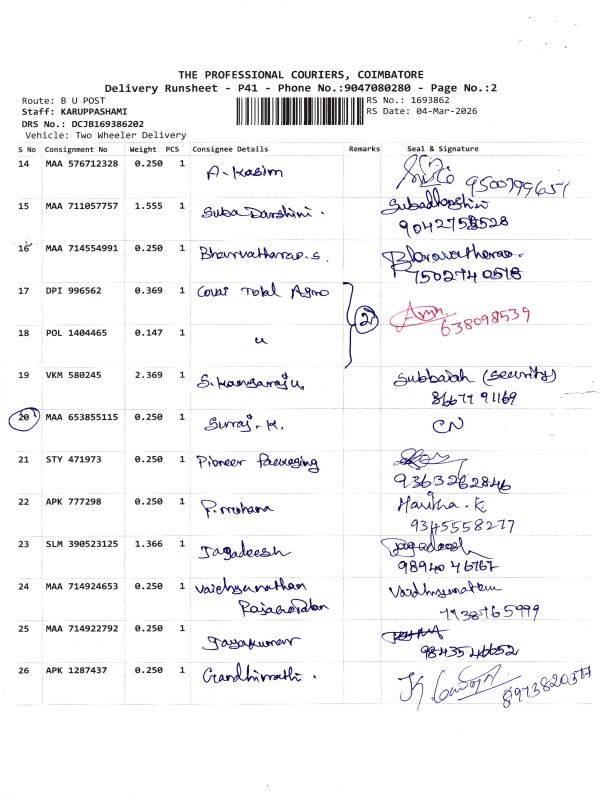 THE PROFESSIONAL COURIERS, COIMBATORE
Delivery Runsheet - P41 - Phone No.:9047080280 - Page No.:2
Route: B U POST RS No.: 1693862
Staff: KARUPPASHAMI RS Date: 04-Mar-2026
DRS No.: DCJB169386202
Vehicle: Two Wheeler Delivery
S No Consignment No Weight PCS Consignee Details Remarks Seal & Signature
14 MAA 576712328 0.250 1 A. Kasim
15 MAA 711057757 1.555 1 Suba Darshini. Subadharshini
9042758528
16 MAA 714554991 0.250 1
7502740518
17 DPI 996562 0.369 1 Covai Total Agro
2
638098539
18 POL 1404465 0.147 1 "
19 VKM 580245 2.369 1 S. Kangaraju. Subbaiah (Security)
8667791169
20 MAA 653855115 0.250 1 Surraj. K. CN
21 STY 471973 0.250 1 Pioneer Packaging
9363262846
22 APK 777298 0.250 1 P. Mohana Haritha. K
9345558277
23 SLM 390523125 1.366 1 Jagadeesh Jagadeesh
9894046767
24 MAA 714924653 0.250 1
7738765999
25 MAA 714922792 0.250 1 Jayakumar
9843546652
26 APK 1287437 0.250 1 Gandhimathi.